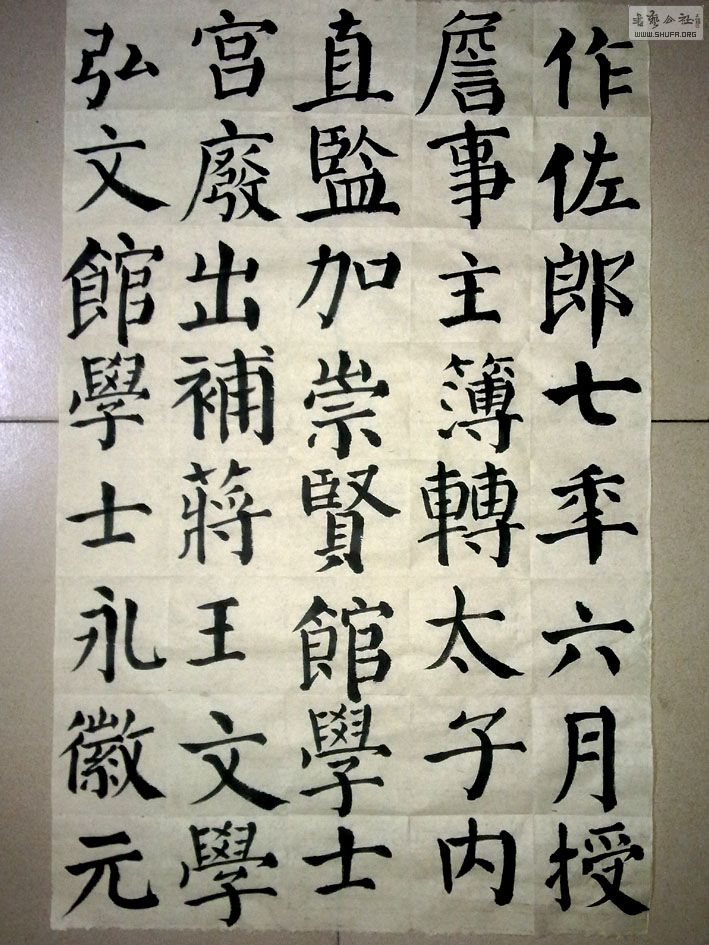 作佐郎七年六月授
詹事主簿轉太子内
直監加崇賢館學士
宮廢出補蔣王文學
弘文館學士永徽元
WWW.SHUFA.ORG